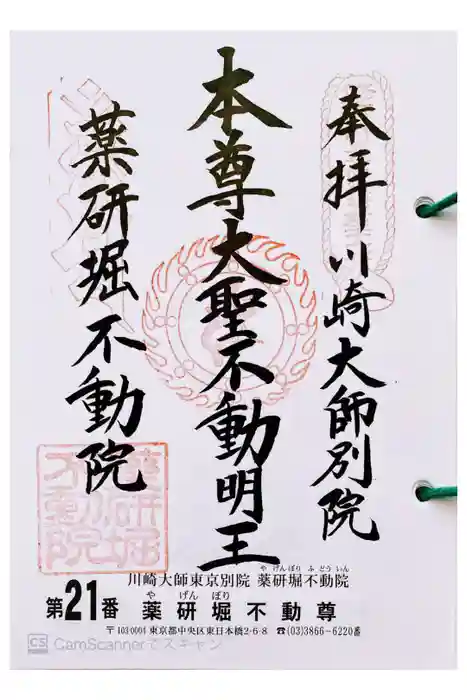 奉拝 川崎大師別院
本尊大聖不動明王
薬研堀不動院
薬研堀不動院
川崎大師東京別院 薬研堀不動院
やげんぼりふどういん
第21番 薬研堀不動尊
やげんぼり
〒103-0004 東京都中央区東日本橋2-6-8 ☎(03)3866-6220番
CS CamScannerでスキャン